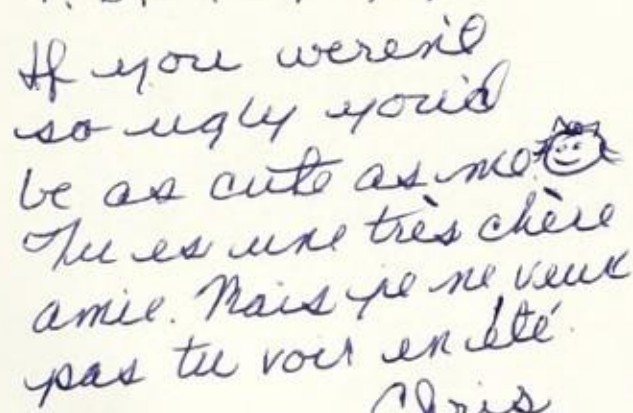 If you weren't
so ugly you'd
be as cute as me.
Tu es une très chère
amie. Mais je ne veux
pas tu voir en été.
Chris